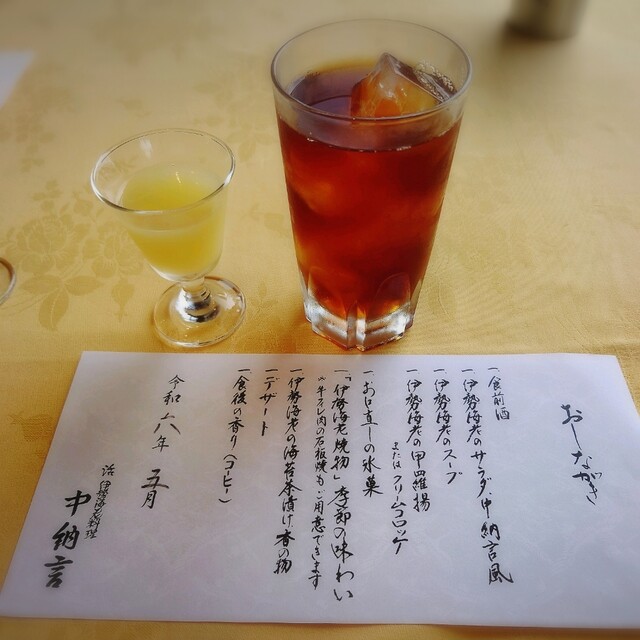 おしながき
一 食前酒
一 伊勢海老のサラダ、中納言風
一 伊勢海老のスープ
一 伊勢海老の甲羅揚
または クリームコロッケ
一 お口直しの氷菓
一 「伊勢海老焼物」季節の味わい
※牛ヒレ肉の石板焼もご用意できます
一 伊勢海老の海苔茶漬け 香の物
一 デザート
一 食後の香り（コーヒー）
令和六年 五月
活 伊勢海老料理
中納言